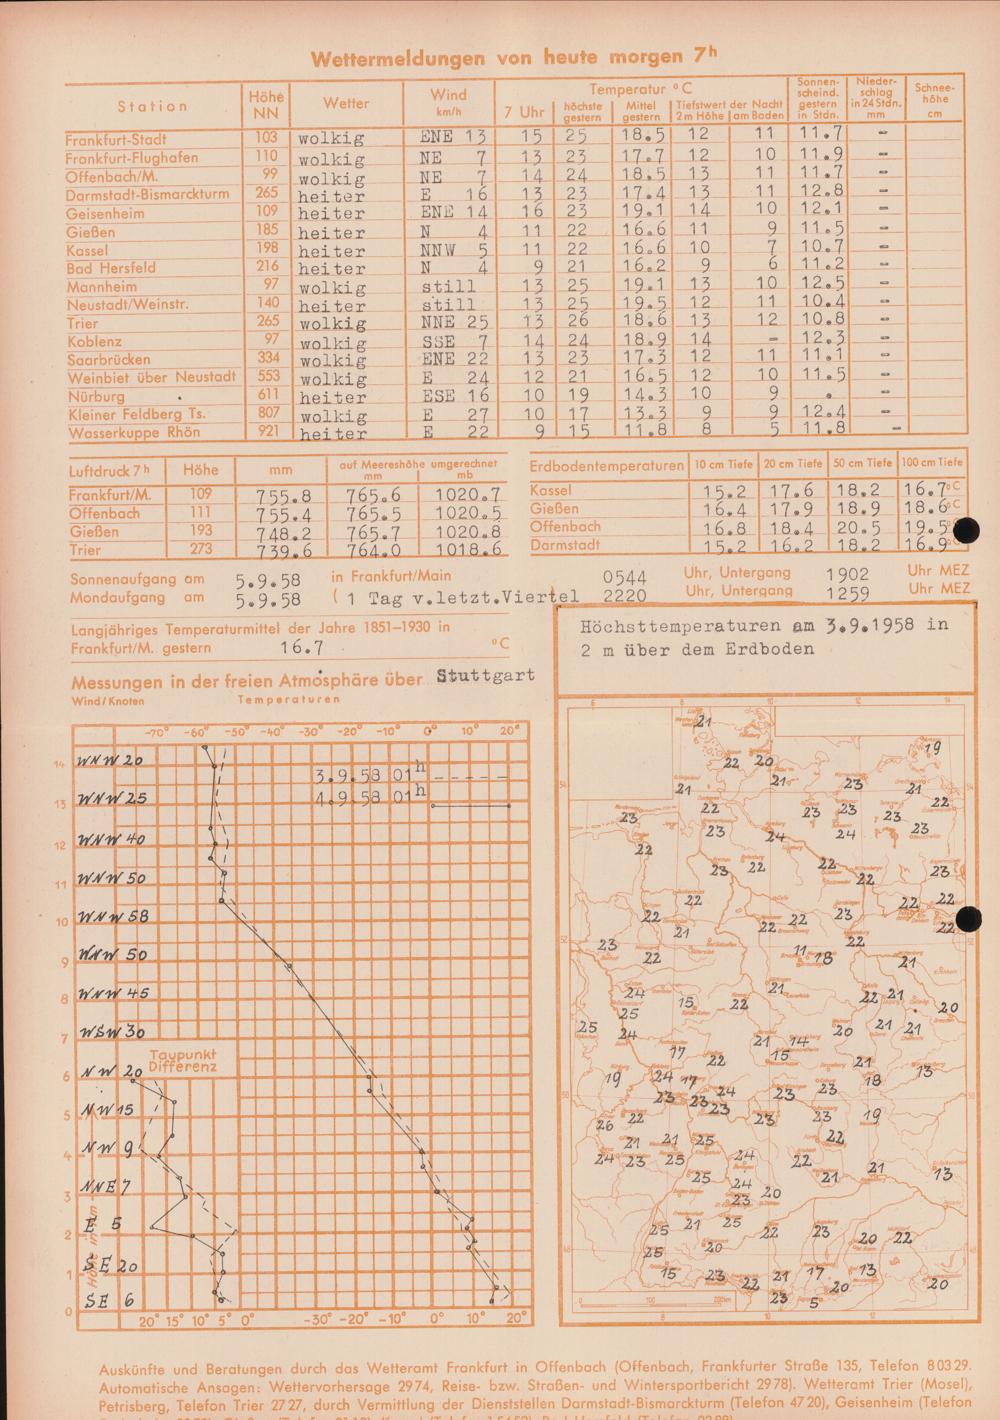 Wettermeldungen von heute morgen 7h
Station Höhe NN Wetter Wind km/h Temperatur °C 7 Uhr höchste gestern Mittel gestern Tiefstwert der Nacht 2 m Höhe am Boden Sonnen-scheind. gestern in Stdn. Nieder-schlag in 24 Stdn. mm Schnee-höhe cm
Frankfurt-Stadt 103 wolkig ENE 13 15 25 18.5 12 11 11.7 -
Frankfurt-Flughafen 110 wolkig NE 7 13 23 17.7 12 10 11.9 -
Offenbach/M. 99 wolkig NE 7 14 24 18.5 13 11 11.7 -
Darmstadt-Bismarckturm 265 heiter E 16 13 23 17.4 13 11 12.8 -
Geisenheim 109 heiter ENE 14 16 23 19.1 14 10 12.1 -
Gießen 185 heiter N 4 11 22 16.6 11 9 11.5 -
Kassel 198 heiter NNW 5 11 22 16.6 10 7 10.7 -
Bad Hersfeld 216 heiter N 4 9 21 16.2 9 6 11.2 -
Mannheim 97 wolkig still 13 25 19.1 13 10 12.5 -
Neustadt/Weinstr. 140 heiter still 13 25 19.5 12 11 10.4 -
Trier 265 wolkig NNE 25 13 26 18.6 13 12 10.8 -
Koblenz 97 wolkig SSE 7 14 24 18.9 14 - 12.3 -
Saarbrücken 334 wolkig ENE 22 13 23 17.3 12 11 11.1 -
Weinbiet über Neustadt 553 wolkig E 24 12 21 16.5 12 10 11.5 -
Nürburg 611 heiter ESE 16 10 19 14.3 10 9 . -
Kleiner Feldberg Ts. 807 wolkig E 27 10 17 13.3 9 9 12.4 -
Wasserkuppe Rhön 921 heiter E 22 9 15 11.8 8 5 11.8 -
Luftdruck 7h Höhe mm auf Meereshöhe umgerechnet mm mb
Frankfurt/M. 109 755.8 765.6 1020.7
Offenbach 111 755.4 765.5 1020.5
Gießen 193 748.2 765.7 1020.8
Trier 273 739.6 764.0 1018.6
Erdbodentemperaturen 10 cm Tiefe 20 cm Tiefe 50 cm Tiefe 100 cm Tiefe
Kassel 15.2 17.6 18.2 16.7°C
Gießen 16.4 17.9 18.9 18.6°C
Offenbach 16.8 18.4 20.5 19.5°
Darmstadt 15.2 16.2 18.2 16.9°C
Sonnenaufgang am 5.9.58 in Frankfurt/Main 0544 Uhr, Untergang 1902 Uhr MEZ
Mondaufgang am 5.9.58 ( 1 Tag v.letzt.Viertel 2220 Uhr, Untergang 1259 Uhr MEZ
Langjähriges Temperaturmittel der Jahre 1851–1930 in
Frankfurt/M. gestern 16.7 °C
Höchsttemperaturen am 3.9.1958 in
2 m über dem Erdboden
Messungen in der freien Atmosphäre über Stuttgart
Wind/Knoten Temperaturen
-70° -60° -50° -40° -30° -20° -10° 0° 10° 20°
14 WNW 20
3.9.58 01h
13 WNW 25
4.9.58 01h
12 WNW 40
11 WNW 50
10 WNW 58
9 WNW 50
8 WNW 45
7 WSW 30
Taupunkt
Differenz
6 NW 20
5 NW 15
4 NW 9
3 NNE 7
2 E 5
1 SE 20
0 SE 6
Höhe in km
20° 15° 10° 5° 0° -30° -20° -10° 0° 10° 20°
21
19
22 20
21 21 23 21
22 23 23 22
23 23 24 24 23 23
22
23 22 22 22 23
22 22 22
22 21 22 22 23 22 22
23 22 11 18 21
24 15 22 21 22 21 20
25
25 24 20 21 21
17 22 21 14 15 21 13
19 24 17 24 23 23 18
26 22 23 23 23 23 23 19
21 21 25 22
24 23 25 24 22 21 21 13
25 24 23 20
25 21 25 22 23 20 22
25 20
15 23 22 21 17 13 20
23 5 20
Auskünfte und Beratungen durch das Wetteramt Frankfurt in Offenbach (Offenbach, Frankfurter Straße 135, Telefon 8 03 29.
Automatische Ansagen: Wettervorhersage 29 74, Reise- bzw. Straßen- und Wintersportbericht 29 78). Wetteramt Trier (Mosel),
Petrisberg, Telefon Trier 27 27, durch Vermittlung der Dienststellen Darmstadt-Bismarckturm (Telefon 47 20), Geisenheim (Telefon